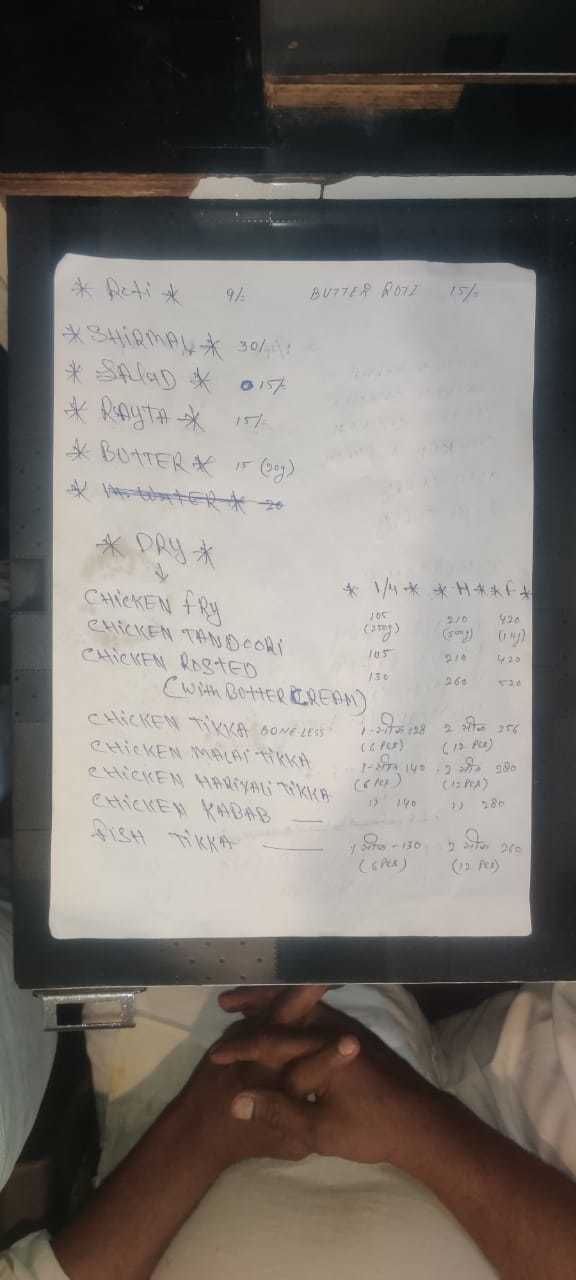 * Roti * 9/- BUTTER ROTI 15/-
* SHIRMAL * 30/-
* SALAD * 15/-
* RAYTA * 15/-
* BUTTER * 15 (20g)
* M. WATER * 20
* DRY *
* 1/4 * * H * * F *
CHICKEN FRY 105 (250g) 210 (500g) 420 (1kg)
CHICKEN TANDOORI 105 210 420
CHICKEN ROSTED 130 260 520
(With BUTTER CREAM)
CHICKEN TIKKA BONE-LESS 1-सीक 128 (6 PCS) 2 सीक 256 (12 PCS)
CHICKEN MALAI TIKKA 1-सीक 140 (6 PCS) 2 सीक 280 (12 PCS)
CHICKEN HARIYALI TIKKA 11 140 11 280
CHICKEN KABAB —
FISH TIKKA — 1 सीक - 130 (6 PCS) 2 सीक 260 (12 PCS)